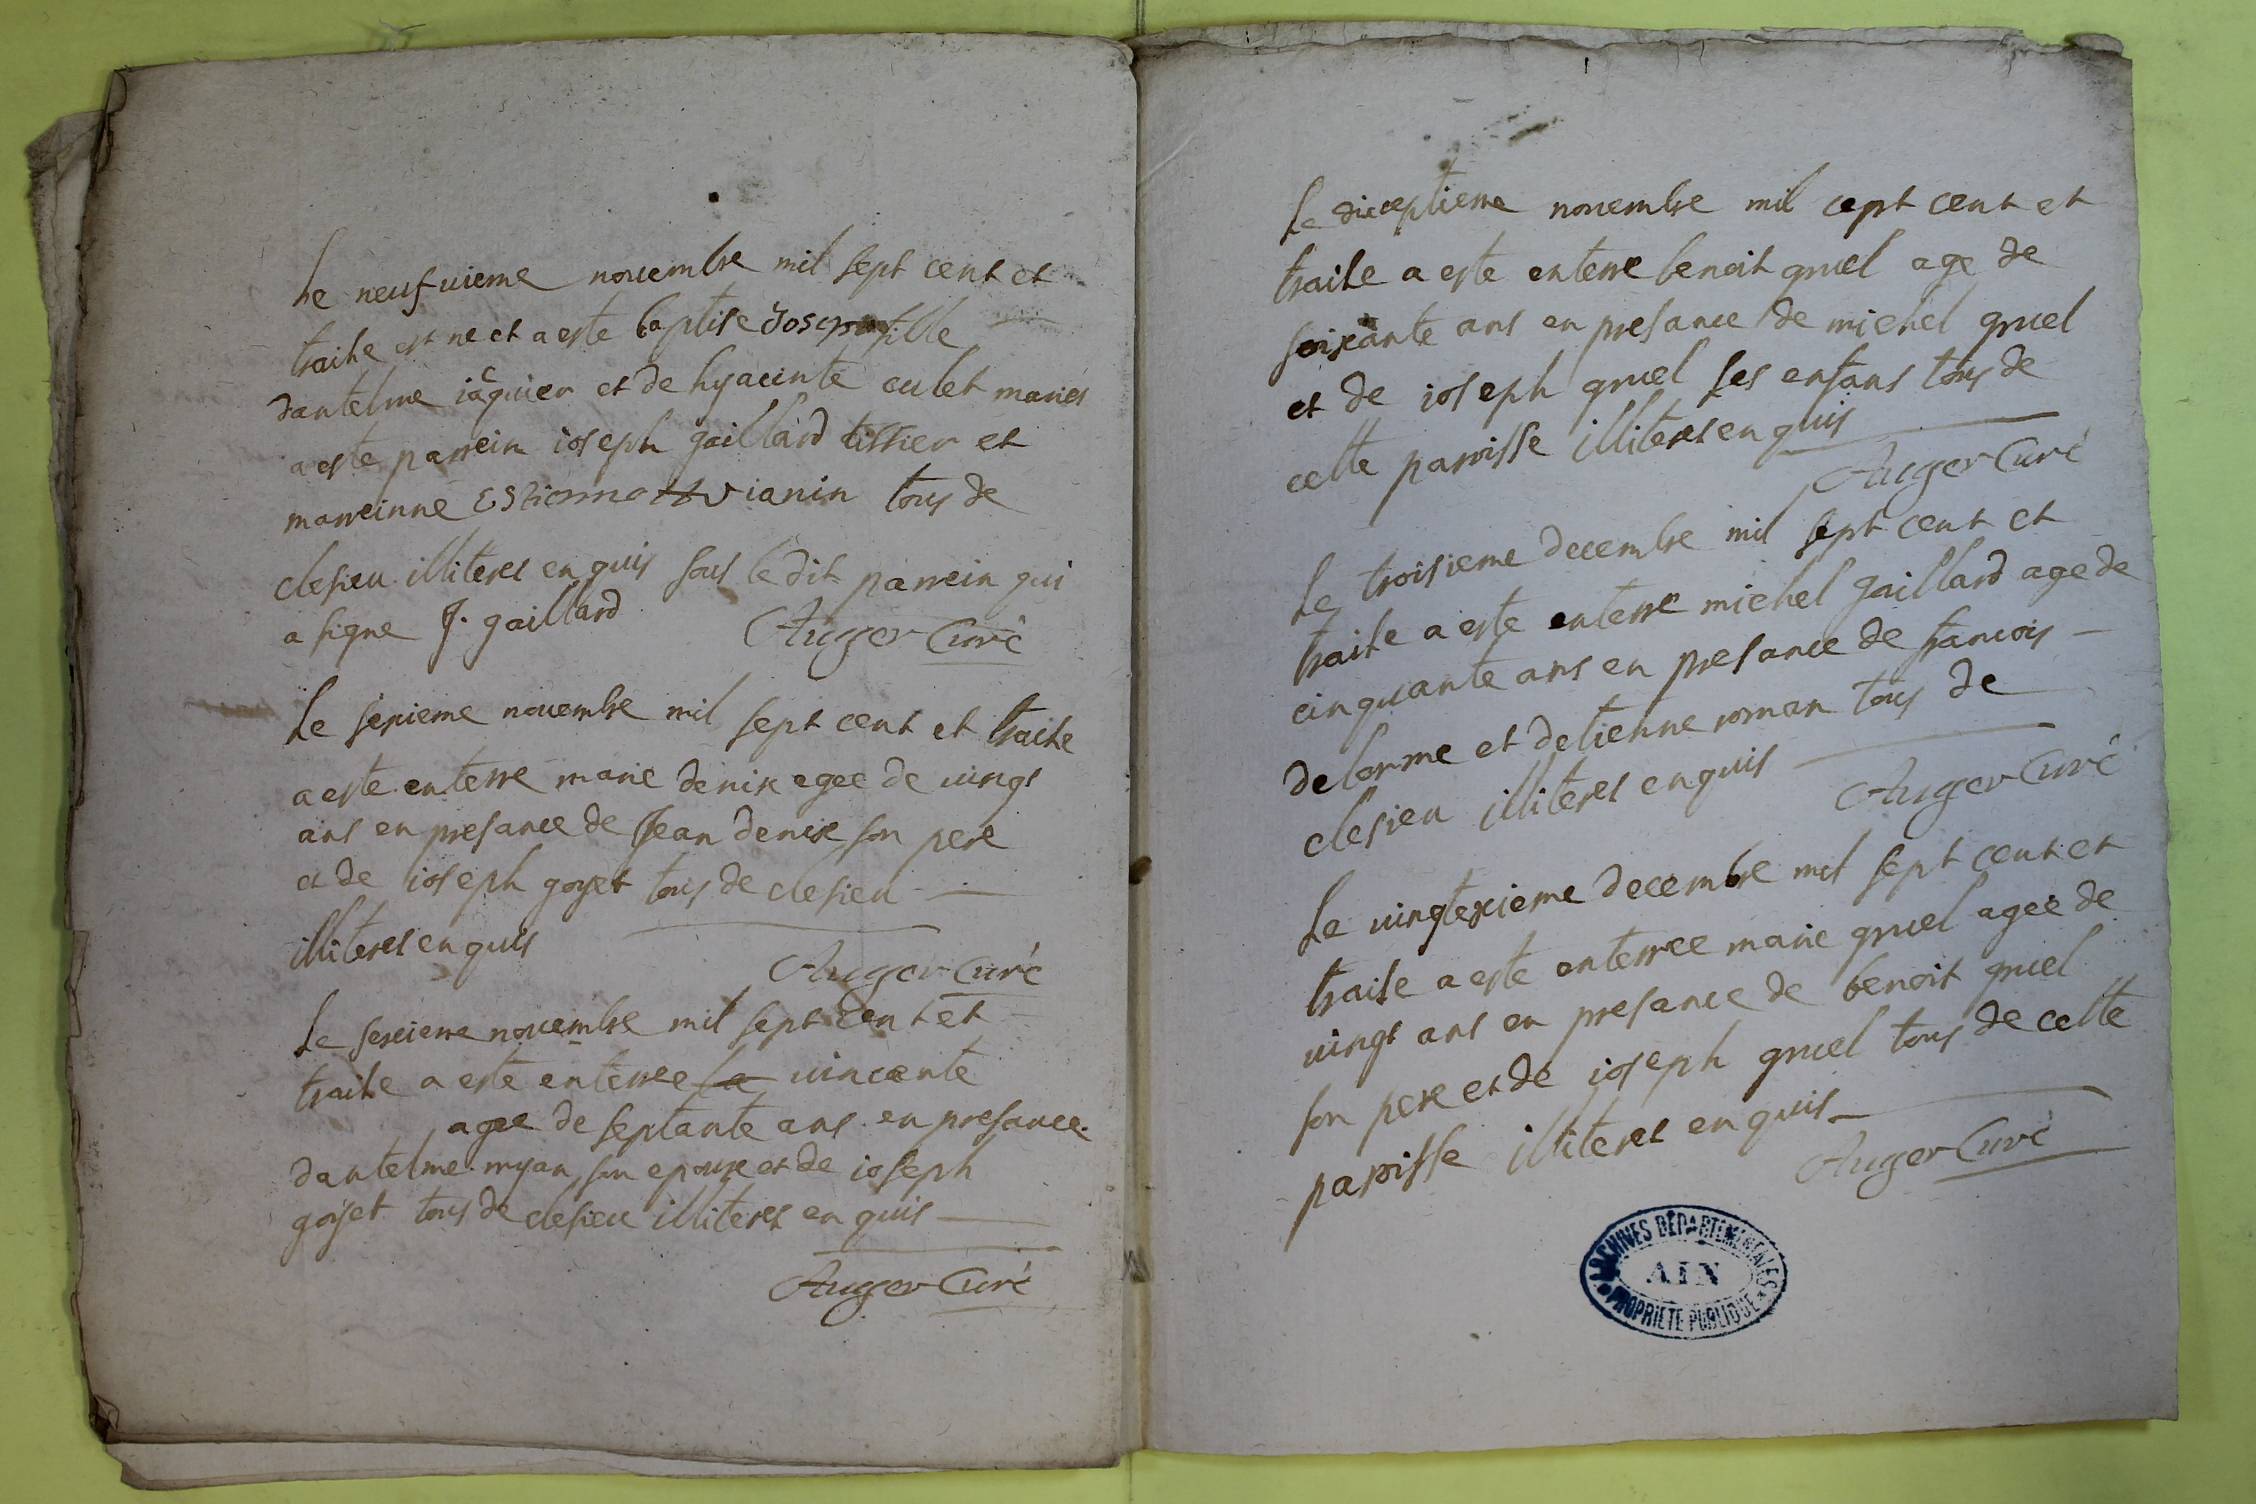 Le neufvieme novembre mil sept cent et
traite est ne et a este baptise fille
dantelme iaquier et de hyacinte culet mariés
a este parrein ioseph gaillard tissier et
marreinne Estienna vianin tous de
clesieu illiteres enquis sous le dit parrein qui
a signe J. gaillard Auger Curé
Le sexieme novembre mil sept cent et traite
a este enterre marie denix agee de vingt
ans en presance de Jean denix son pere
et de ioseph goyet tous de clesieu
illiteres enquis
Auger Curé
Le sexieme novembre mil sept cent et
traite a este enterree la vincente
agee de septante ans en presance
dantelme son epoux et de ioseph
goyet tous de clesieu illiteres enquis
Auger Curé
Le dixceptieme novembre mil cept cent et
traite a este enterre benoit gruel age de
soixante ans en presance de michel gruel
et de ioseph gruel ses enfans tous de
cette paroisse illiteres enquis
Auger Curé
Le troisieme decembre mil sept cent et
traite a este enterre michel gaillard age de
cinquante ans en presance de francois
delorme et detienne roman tous de
clesieu illiteres enquis
Auger Curé
Le vingtexieme decembre mil sept cent et
traite a este enterree marie gruel agee de
vingt ans en presance de benoit gruel
son pere et de ioseph gruel tous de cette
paroisse illiteres enquis
Auger Curé
ARCHIVES DÉPARTEMENTALES
AIN
PROPRIÉTÉ PUBLIQUE